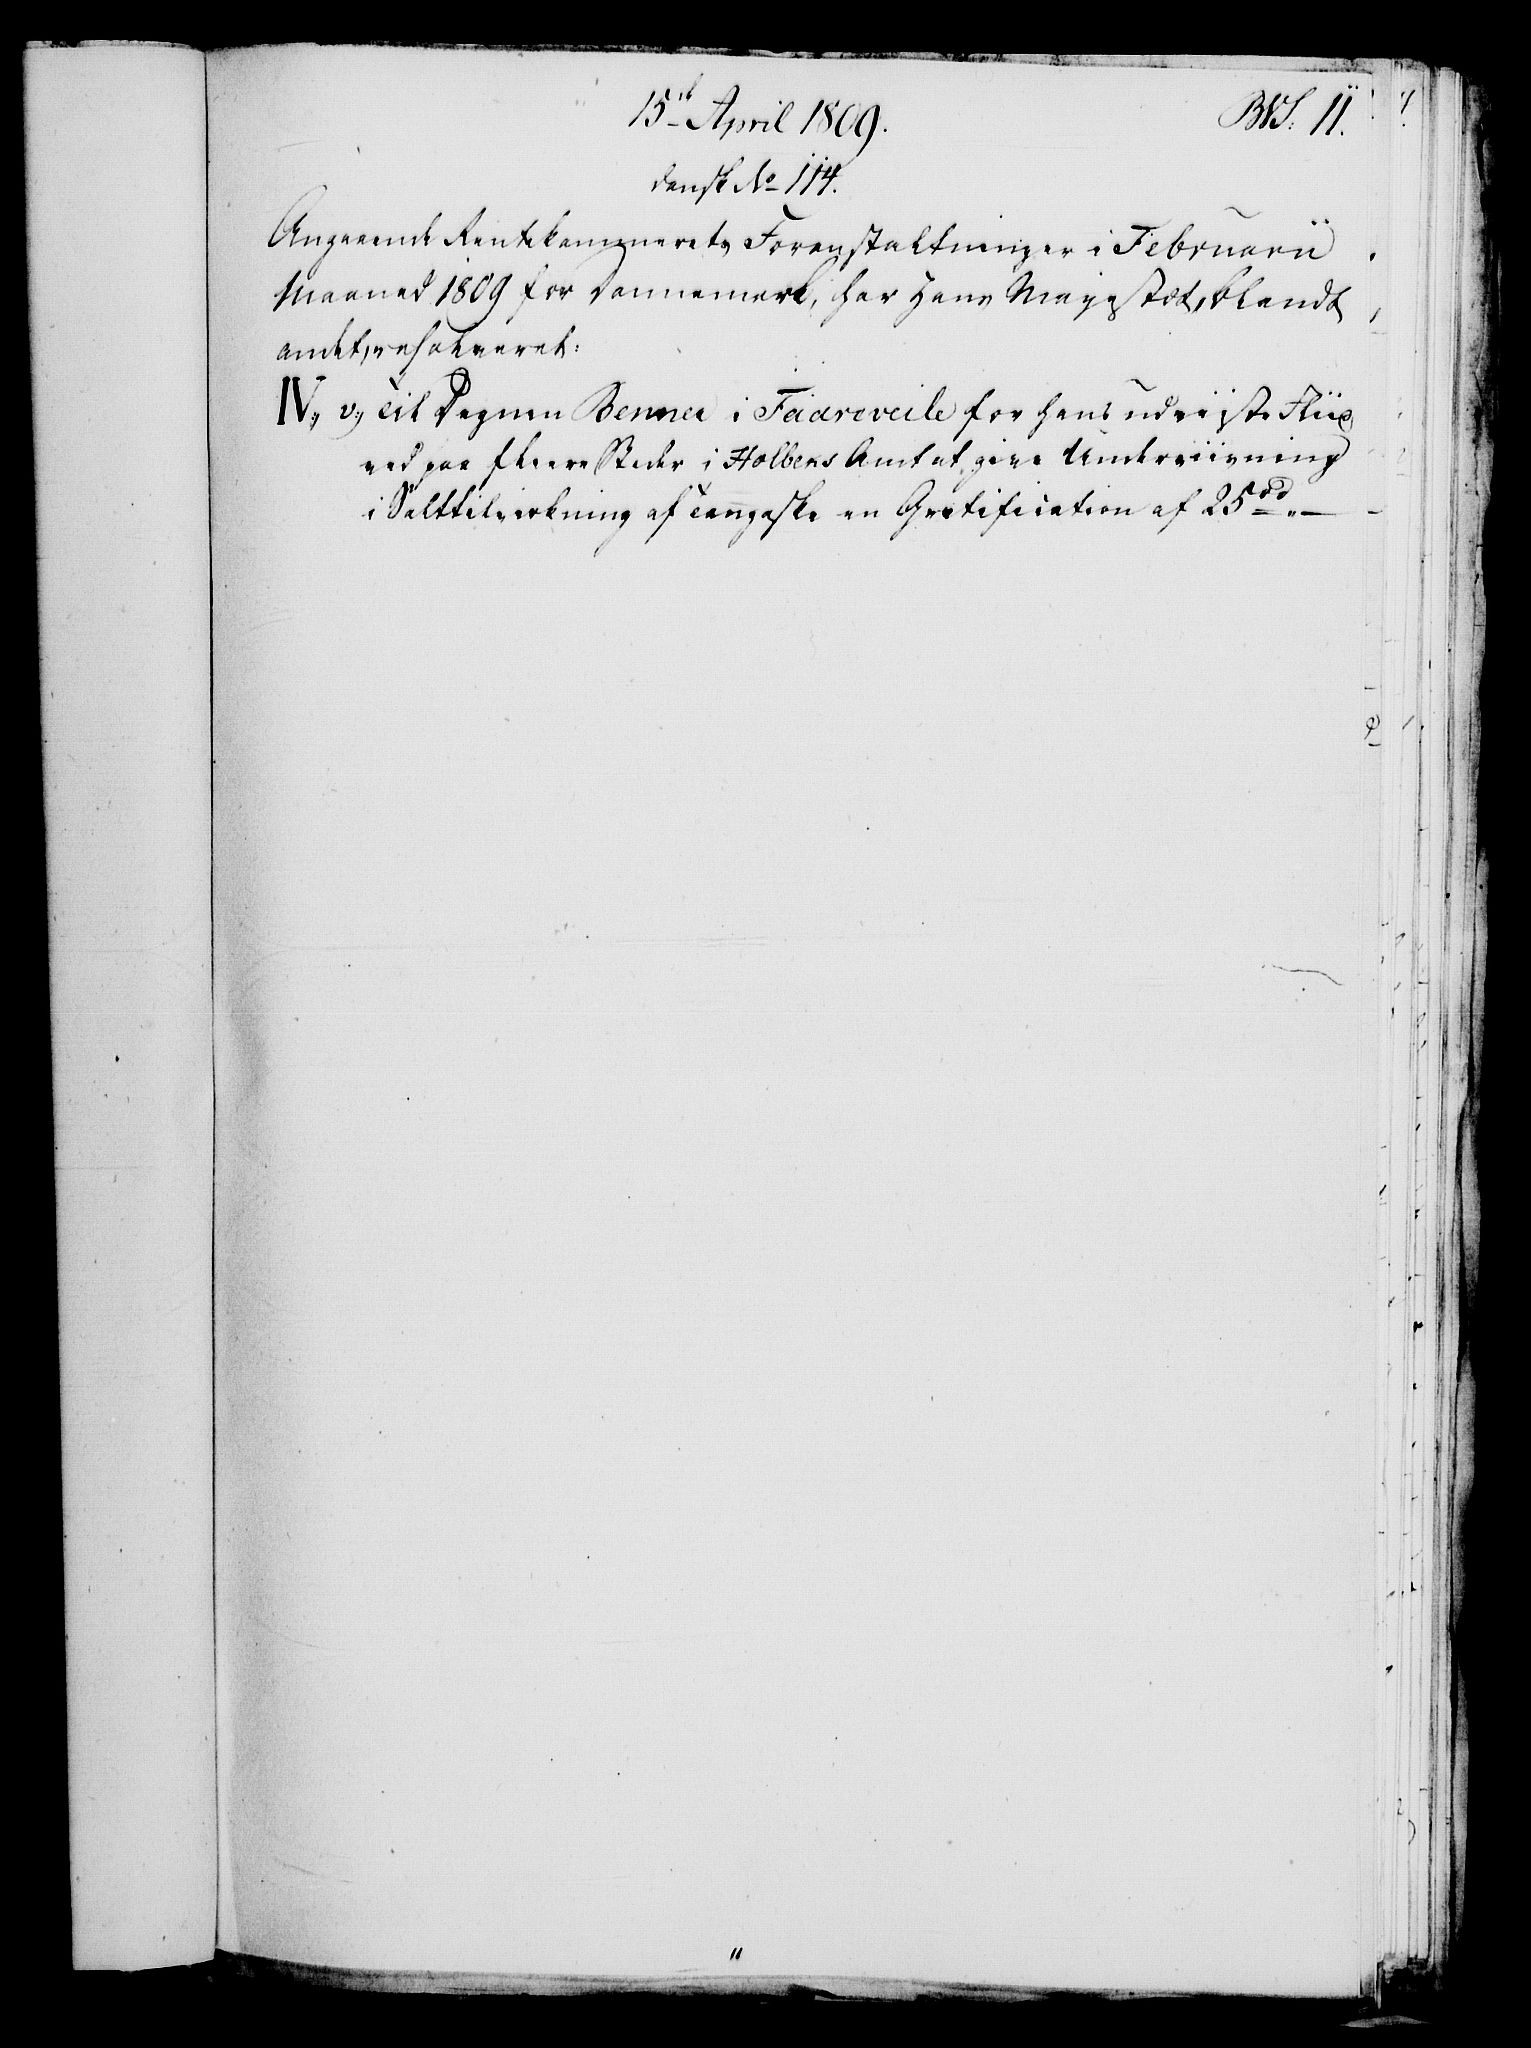 15de April 1809.
BVS: 11.
dansk No 114.
Angaaende Rentekammerets Foranstaltninger i Februarii
Maaned 1809 for Dannemark, har Hans Majestæt, blandt
andet, resolveret:
IV, v, Til Degnen Benner i Faareveile for hans udviiste Fliid
ved paa fleere Steder i Holbeks Amt at give Underviisning
i Salttilvirkning af Tangaske en Gratification af 25 rd " —
"